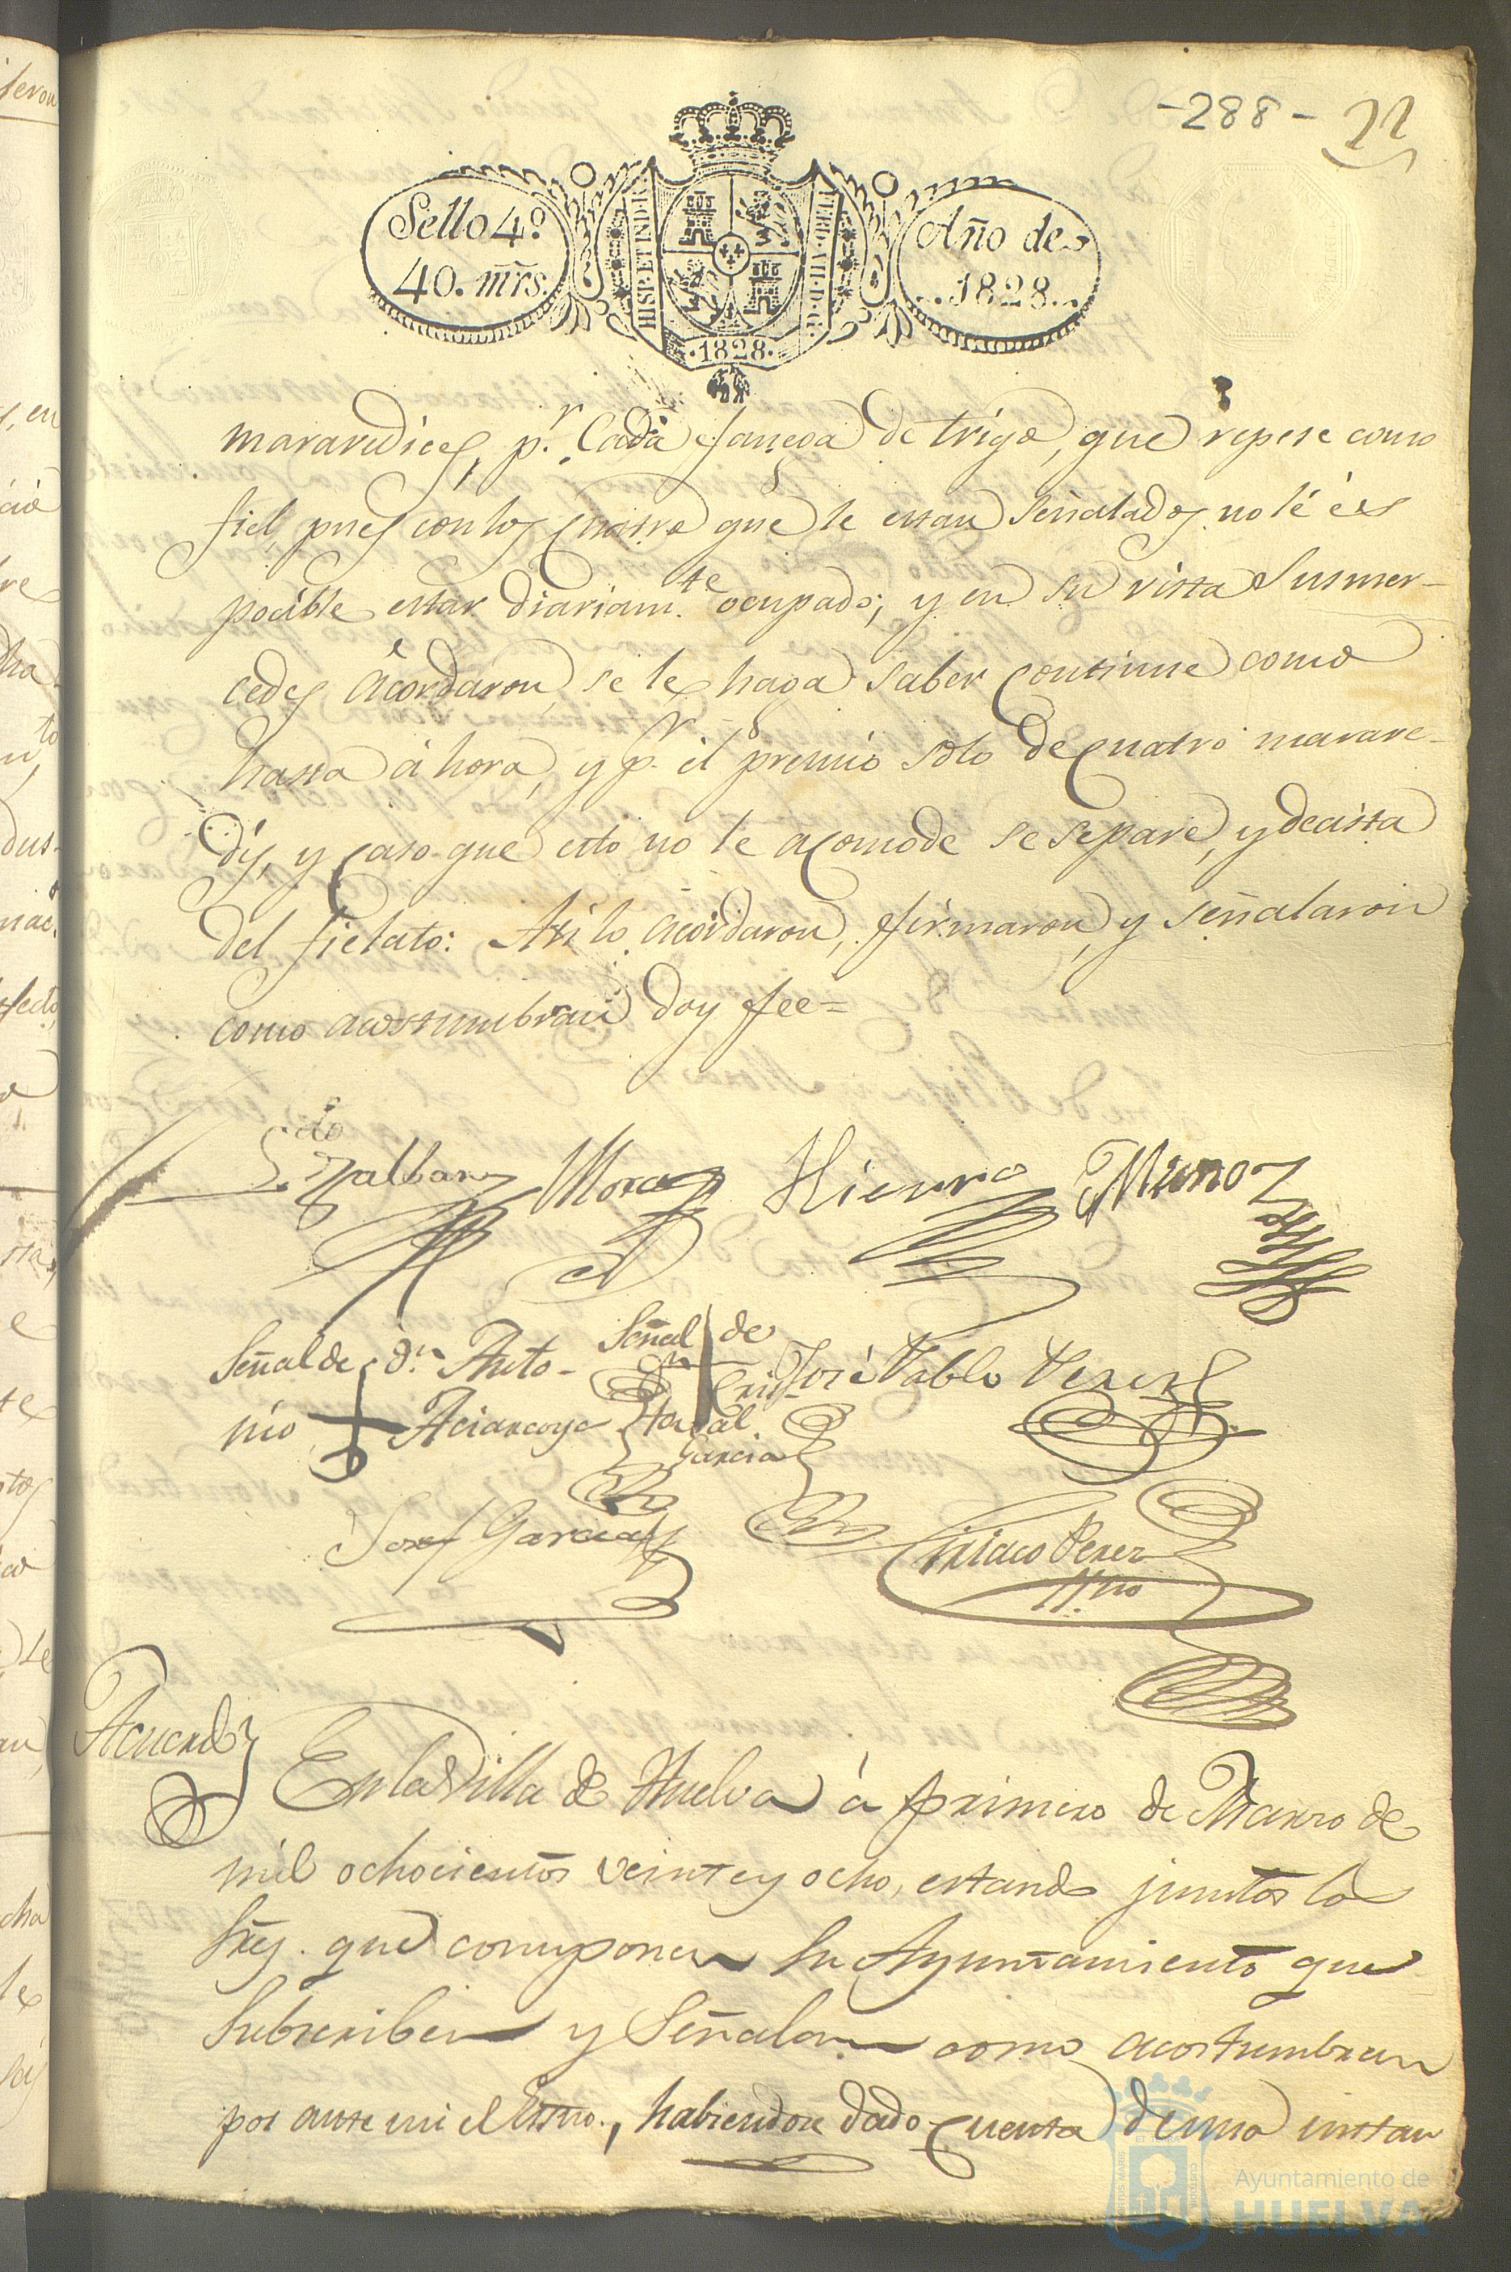 -288- 22
Sello 4º
40. mrs.
HISP. ET IND. R.
Año de
1828.
·1828·
maravedices, p.r Cada fanega de trigo, que repese como
fiel, pues con los Cuatro que le estan señalados no lé és
pocible estar diariam.te ocupado; y en su vista Susmer-
cedes acordaron, se le haga saber Continue como
hasta áhora, y p.r el premio solo de Cuatro marave-
dis, y Caso que esto no le acomode se separe, y decista
del fielato: Asi lo acordaron, firmaron, y señalaron
como acostumbran doy fee=
Mora Hierro Muñoz
Señal de d.n Anto-
nio
Señal de
Cris-
toval
Garcia
José Pablo Perez
Josef Garcia
Ciriaco Perez
Acuerdo
En la Villa de Huelva á primero de Marzo de
mil ochocientos veinte y ocho, estando juntos los
Sres. que componen su Ayuntamiento que
subscriben y Señalan como acostumbran
por ante mi el Essno., habiendose dado Cuenta de una instan
Ayuntamiento de
HUELVA